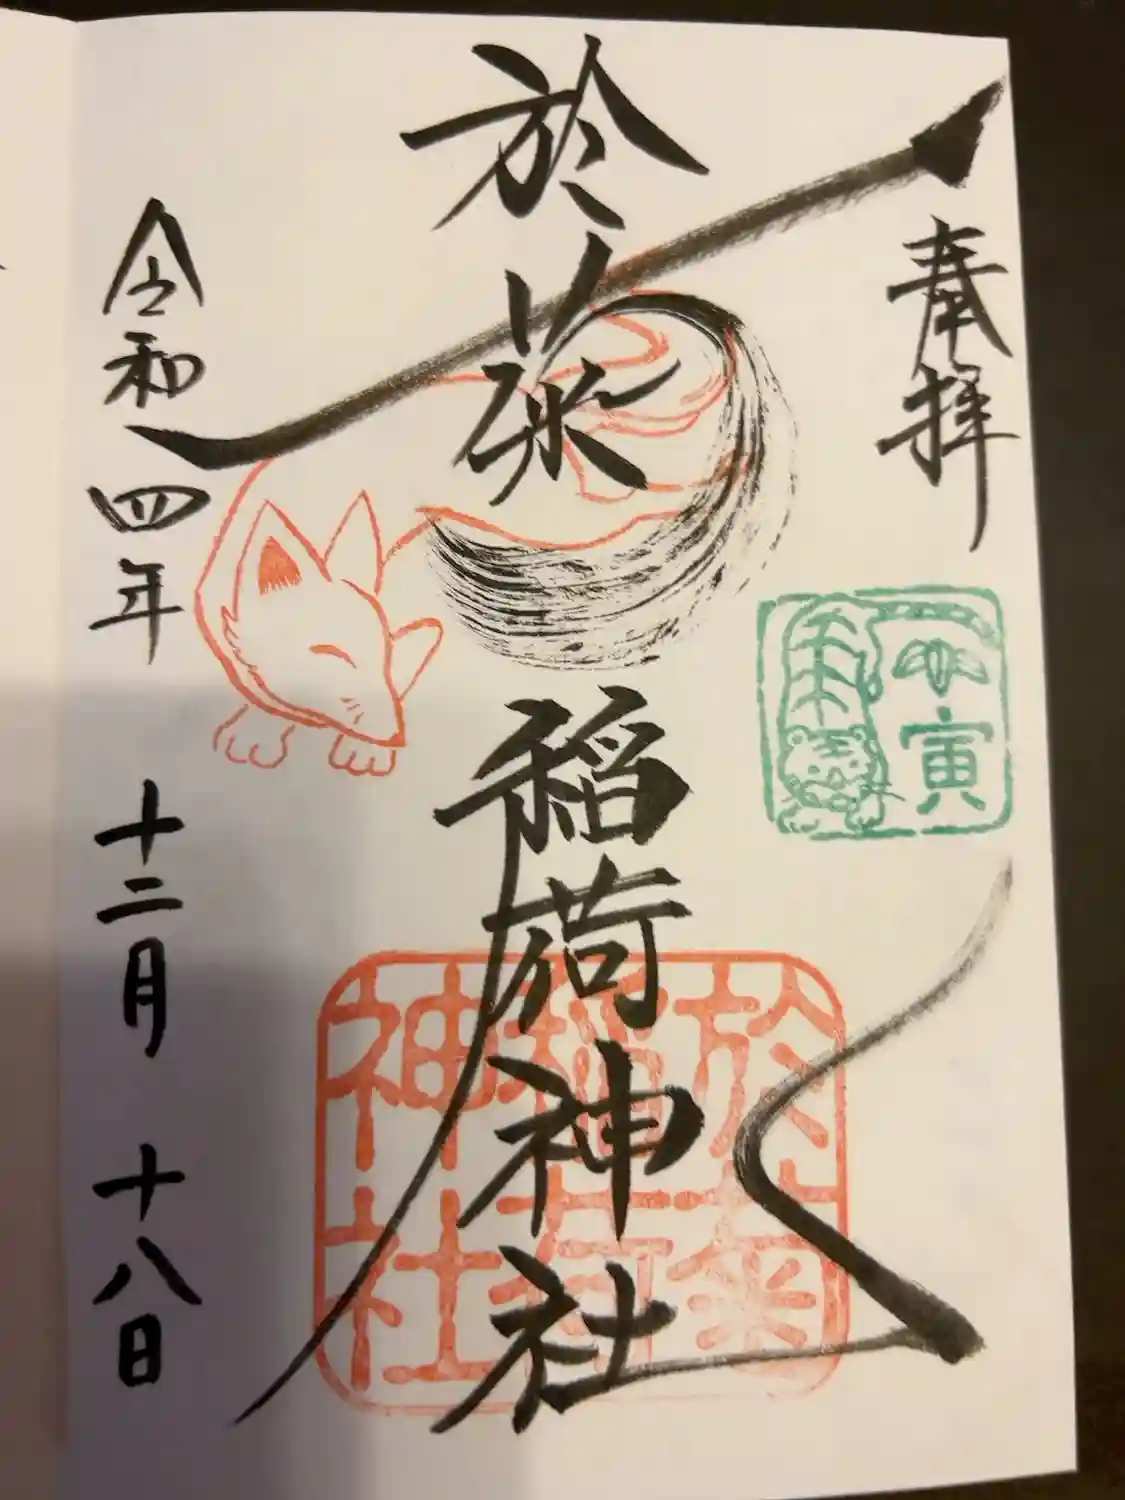 奉拝
寅
於菊稲荷神社
於菊
稲荷
神社
令和四年 十二月 十八日